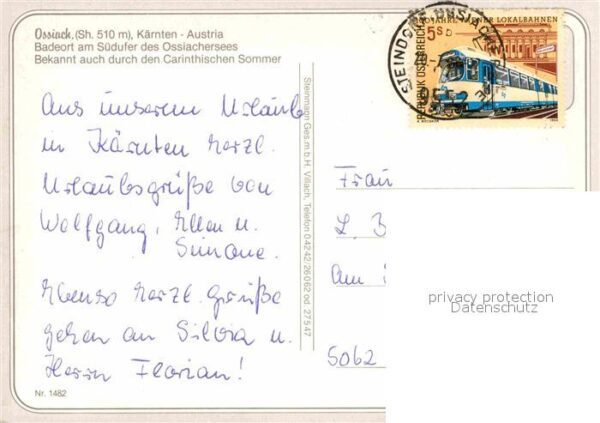 Ossiach, (Sh. 510 m), Kärnten - Austria
Badeort am Südufer des Ossiachersees
Bekannt auch durch den Carinthischen Sommer
Aus unserem Urlaub
in Kärnten herzl.
Urlaubsgrüße von
Wolfgang, Ellen u.
Simone.
Ebenso herzl. Grüße
gehen an Silvia u.
Herrn Florian!
Nr. 1482
Steinmann Ges.m.b.H. Villach, Telefon 0 42 42/26062 od. 27547
LOKALBAHNEN
5 S
REPUBLIK ÖSTERREICH
STEINDORF
Frau
L. B
Am
5062
privacy protection
Datenschutz